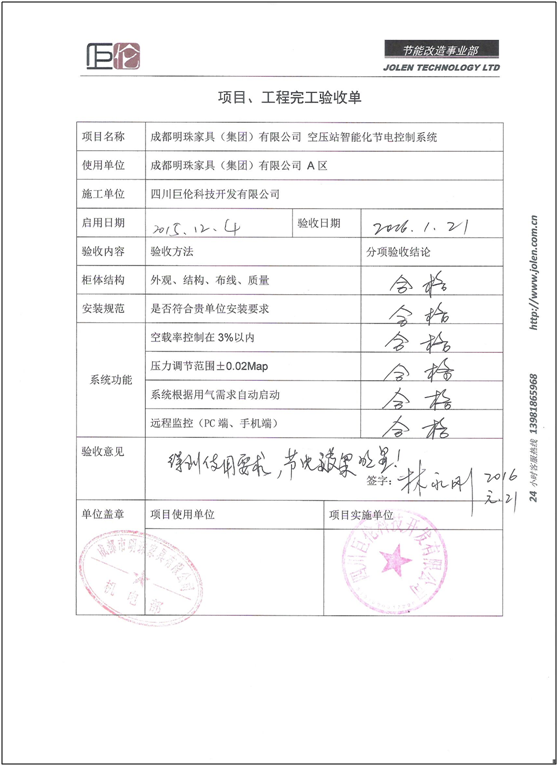 巨伦
节能改造事业部
JOLEN TECHNOLOGY LTD
项目、工程完工验收单
项目名称 成都明珠家具（集团）有限公司 空压站智能化节电控制系统
使用单位 成都明珠家具（集团）有限公司 A区
施工单位 四川巨伦科技开发有限公司
启用日期 2015.12.4 验收日期 2016.1.21
验收内容 验收方法 分项验收结论
柜体结构 外观、结构、布线、质量 合格
安装规范 是否符合贵单位安装要求 合格
系统功能 空载率控制在3%以内 合格
压力调节范围±0.02Map 合格
系统根据用气需求自动启动 合格
远程监控（PC端、手机端） 合格
验收意见 得到使用要求，节电效果明显！
签字：林永刚 2016
元.21
单位盖章 项目使用单位 项目实施单位
成都市明珠家具有限公司
机电部
四川巨伦科技开发有限公司
http://www.jolen.com.cn
24 小时客服热线 13981865968